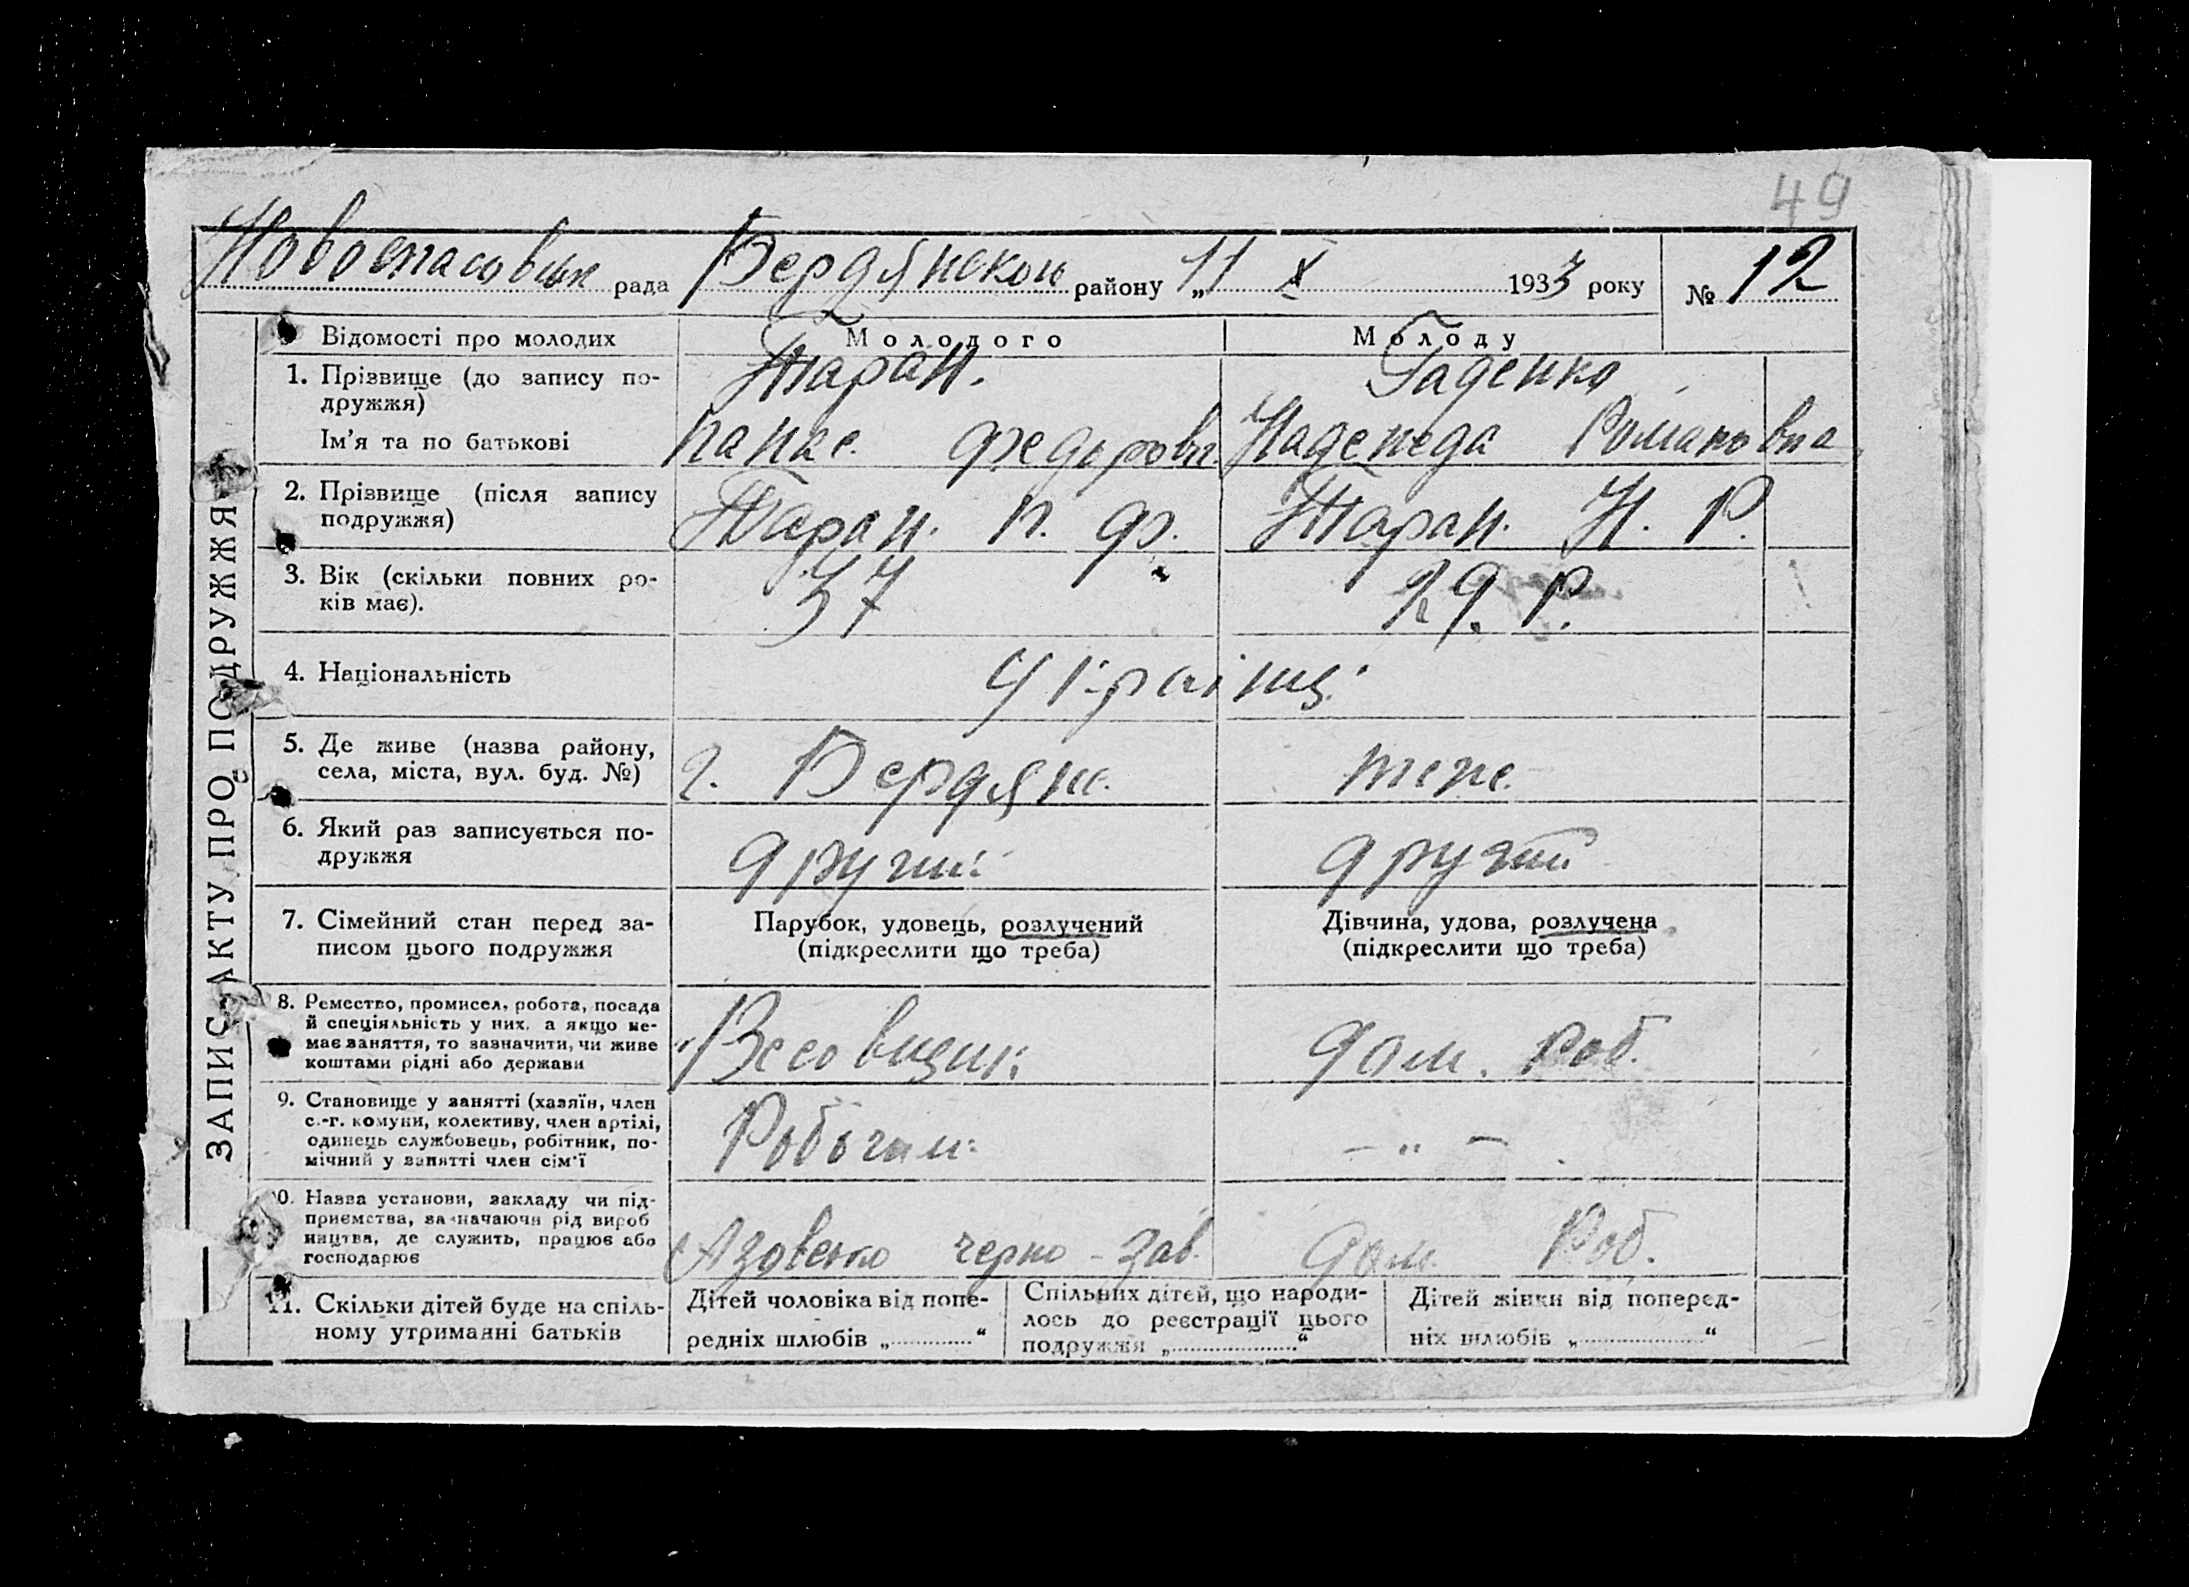 49
Новоспасовськ рада Бердянскою району „11 X 1933 року № 12
ЗАПИС АКТУ ПРО ПОДРУЖЖЯ
Відомості про молодих Молодого Молоду
1. Прізвище (до запису по- Таран. Гаденко
дружжя)
Ім'я та по батькові Федоров Надежда Романовна
2. Прізвище (після запису Таран. П. Ф. Таран. Н. Р.
подружжя)
3. Вік (скільки повних ро- 37 29. Р.
ків має).
4. Національність Українці
5. Де живе (назва району, г. Бердянс. теже.
села, міста, вул. буд. №)
6. Який раз записується по- другий другий
дружжя
7. Сімейний стан перед за- Парубок, удовець, розлучений Дівчина, удова, розлучена
писом цього подружжя (підкреслити що треба) (підкреслити що треба)
8. Ремество, промисел, робота, посада
й спеціяльність у них, а якщо не-
має заняття, то зазначити, чи живе Весовщик дом. Роб.
коштами рідні або держави
9. Становище у занятті (хазяїн, член
с.-г. комуни, колективу, член артілі,
одинець службовець, робітник, по- Робочий - „ -
мічний у занятті член сім'ї
10. Назва установи, закладу чи під-
приємства, зазначаючи рід вироб
ництва, де служить, працює або Азовсько черно - зав. дом. Роб.
господарює
11. Скільки дітей буде на спіль- Дітей чоловіка від попе- Спільних дітей, що народи- Дітей жінки від поперед-
ному утриманні батьків редніх шлюбів „ “ лось до реєстрації цього ніх шлюбів „ “
подружжя „ “